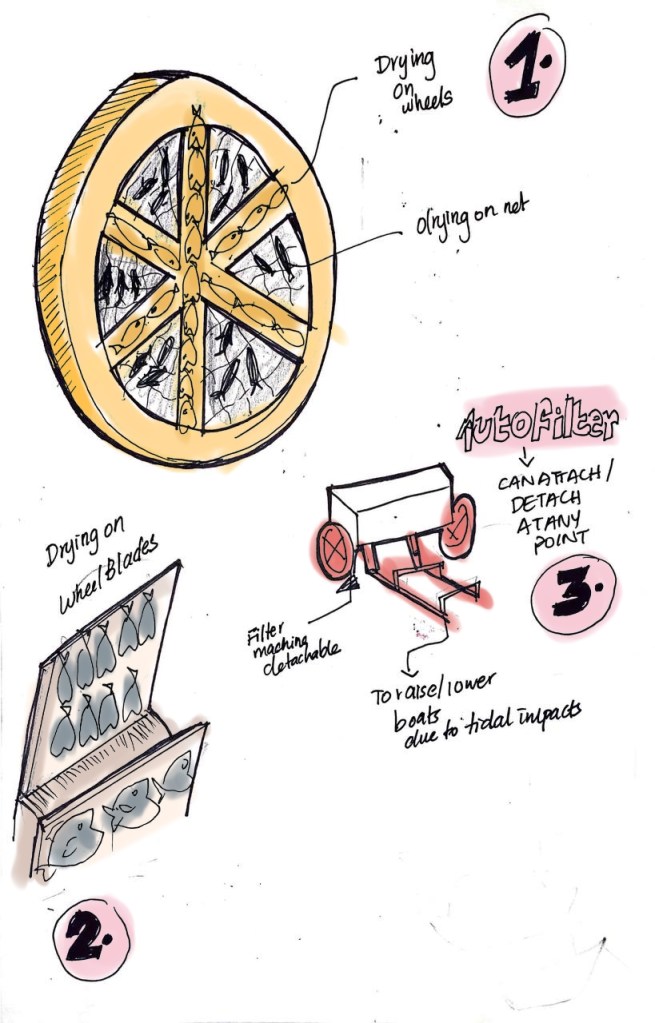 1.
Drying
on
wheels
drying on net
AutoFilter
CAN ATTACH/
DETACH
AT ANY
POINT
3.
Filter
machine
detachable
To raise/lower
boats
due to tidal impacts
Drying on
Wheel Blades
2.